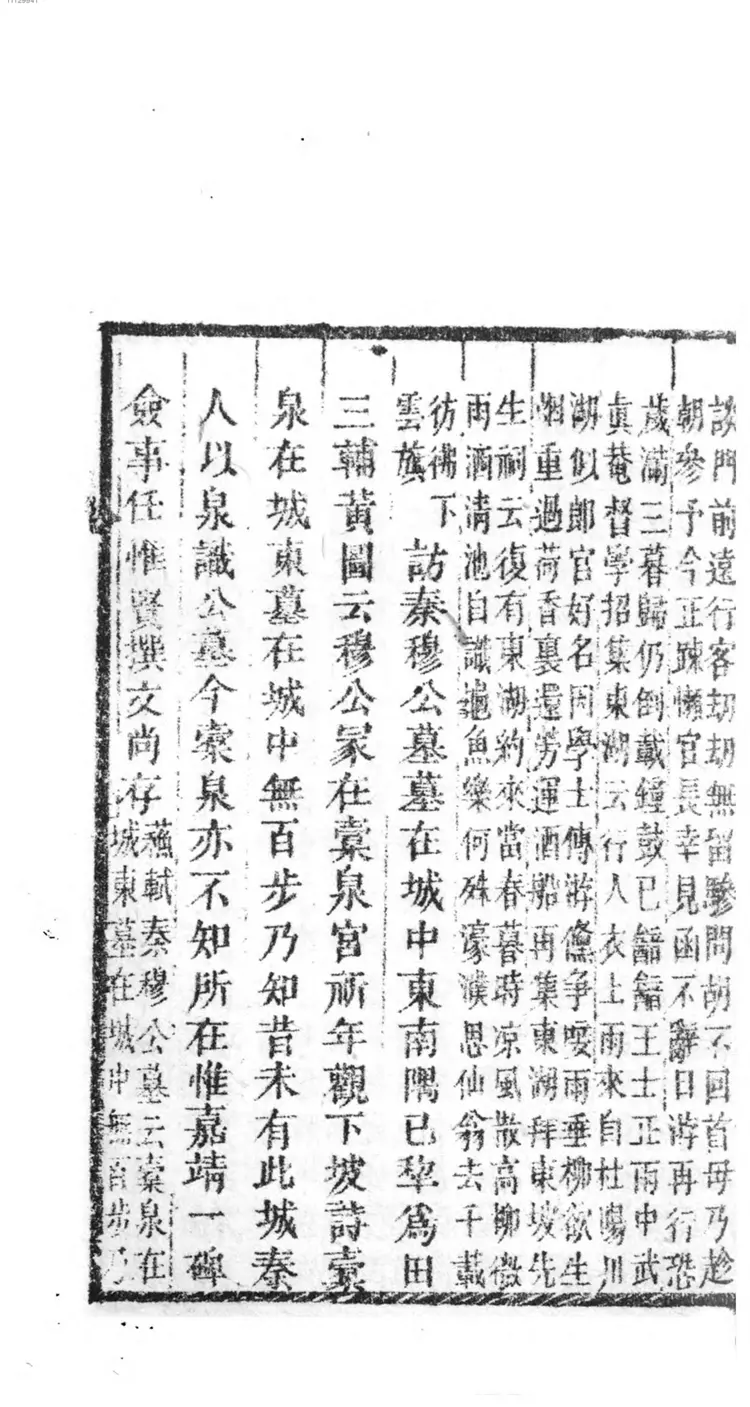 談門前遠行客劫劫無留驂問胡不回首毋乃趁
朝參予今正踈懶官長幸見函不辭日游再行恐
歲滿三暮歸仍倒載鐘鼓已韽韽王士正雨中武
眞菴督學招集東湖云行人衣上雨來自杜陽川
湖似郎官好名因學士傳游儵爭唼雨垂柳欲生
烟重過荷香裏還勞運酒船再集東湖拜東坡先
生祠云復有東湖約來當春暮時凉風散高柳微
雨洒清池自識龜魚樂何殊濠濮思仙翁去千載
彷彿下
雲旗
訪秦穆公墓墓在城中東南隅已犂爲田
三輔黃圖云穆公冢在橐泉宮祈年觀下坡詩橐
泉在城東墓在城中無百步乃知昔未有此城秦
人以泉識公墓今橐泉亦不知所在惟嘉靖一碑
僉事任惟賢撰文尚存
蘇軾秦穆公墓云橐泉在
城東墓在城中無百步乃